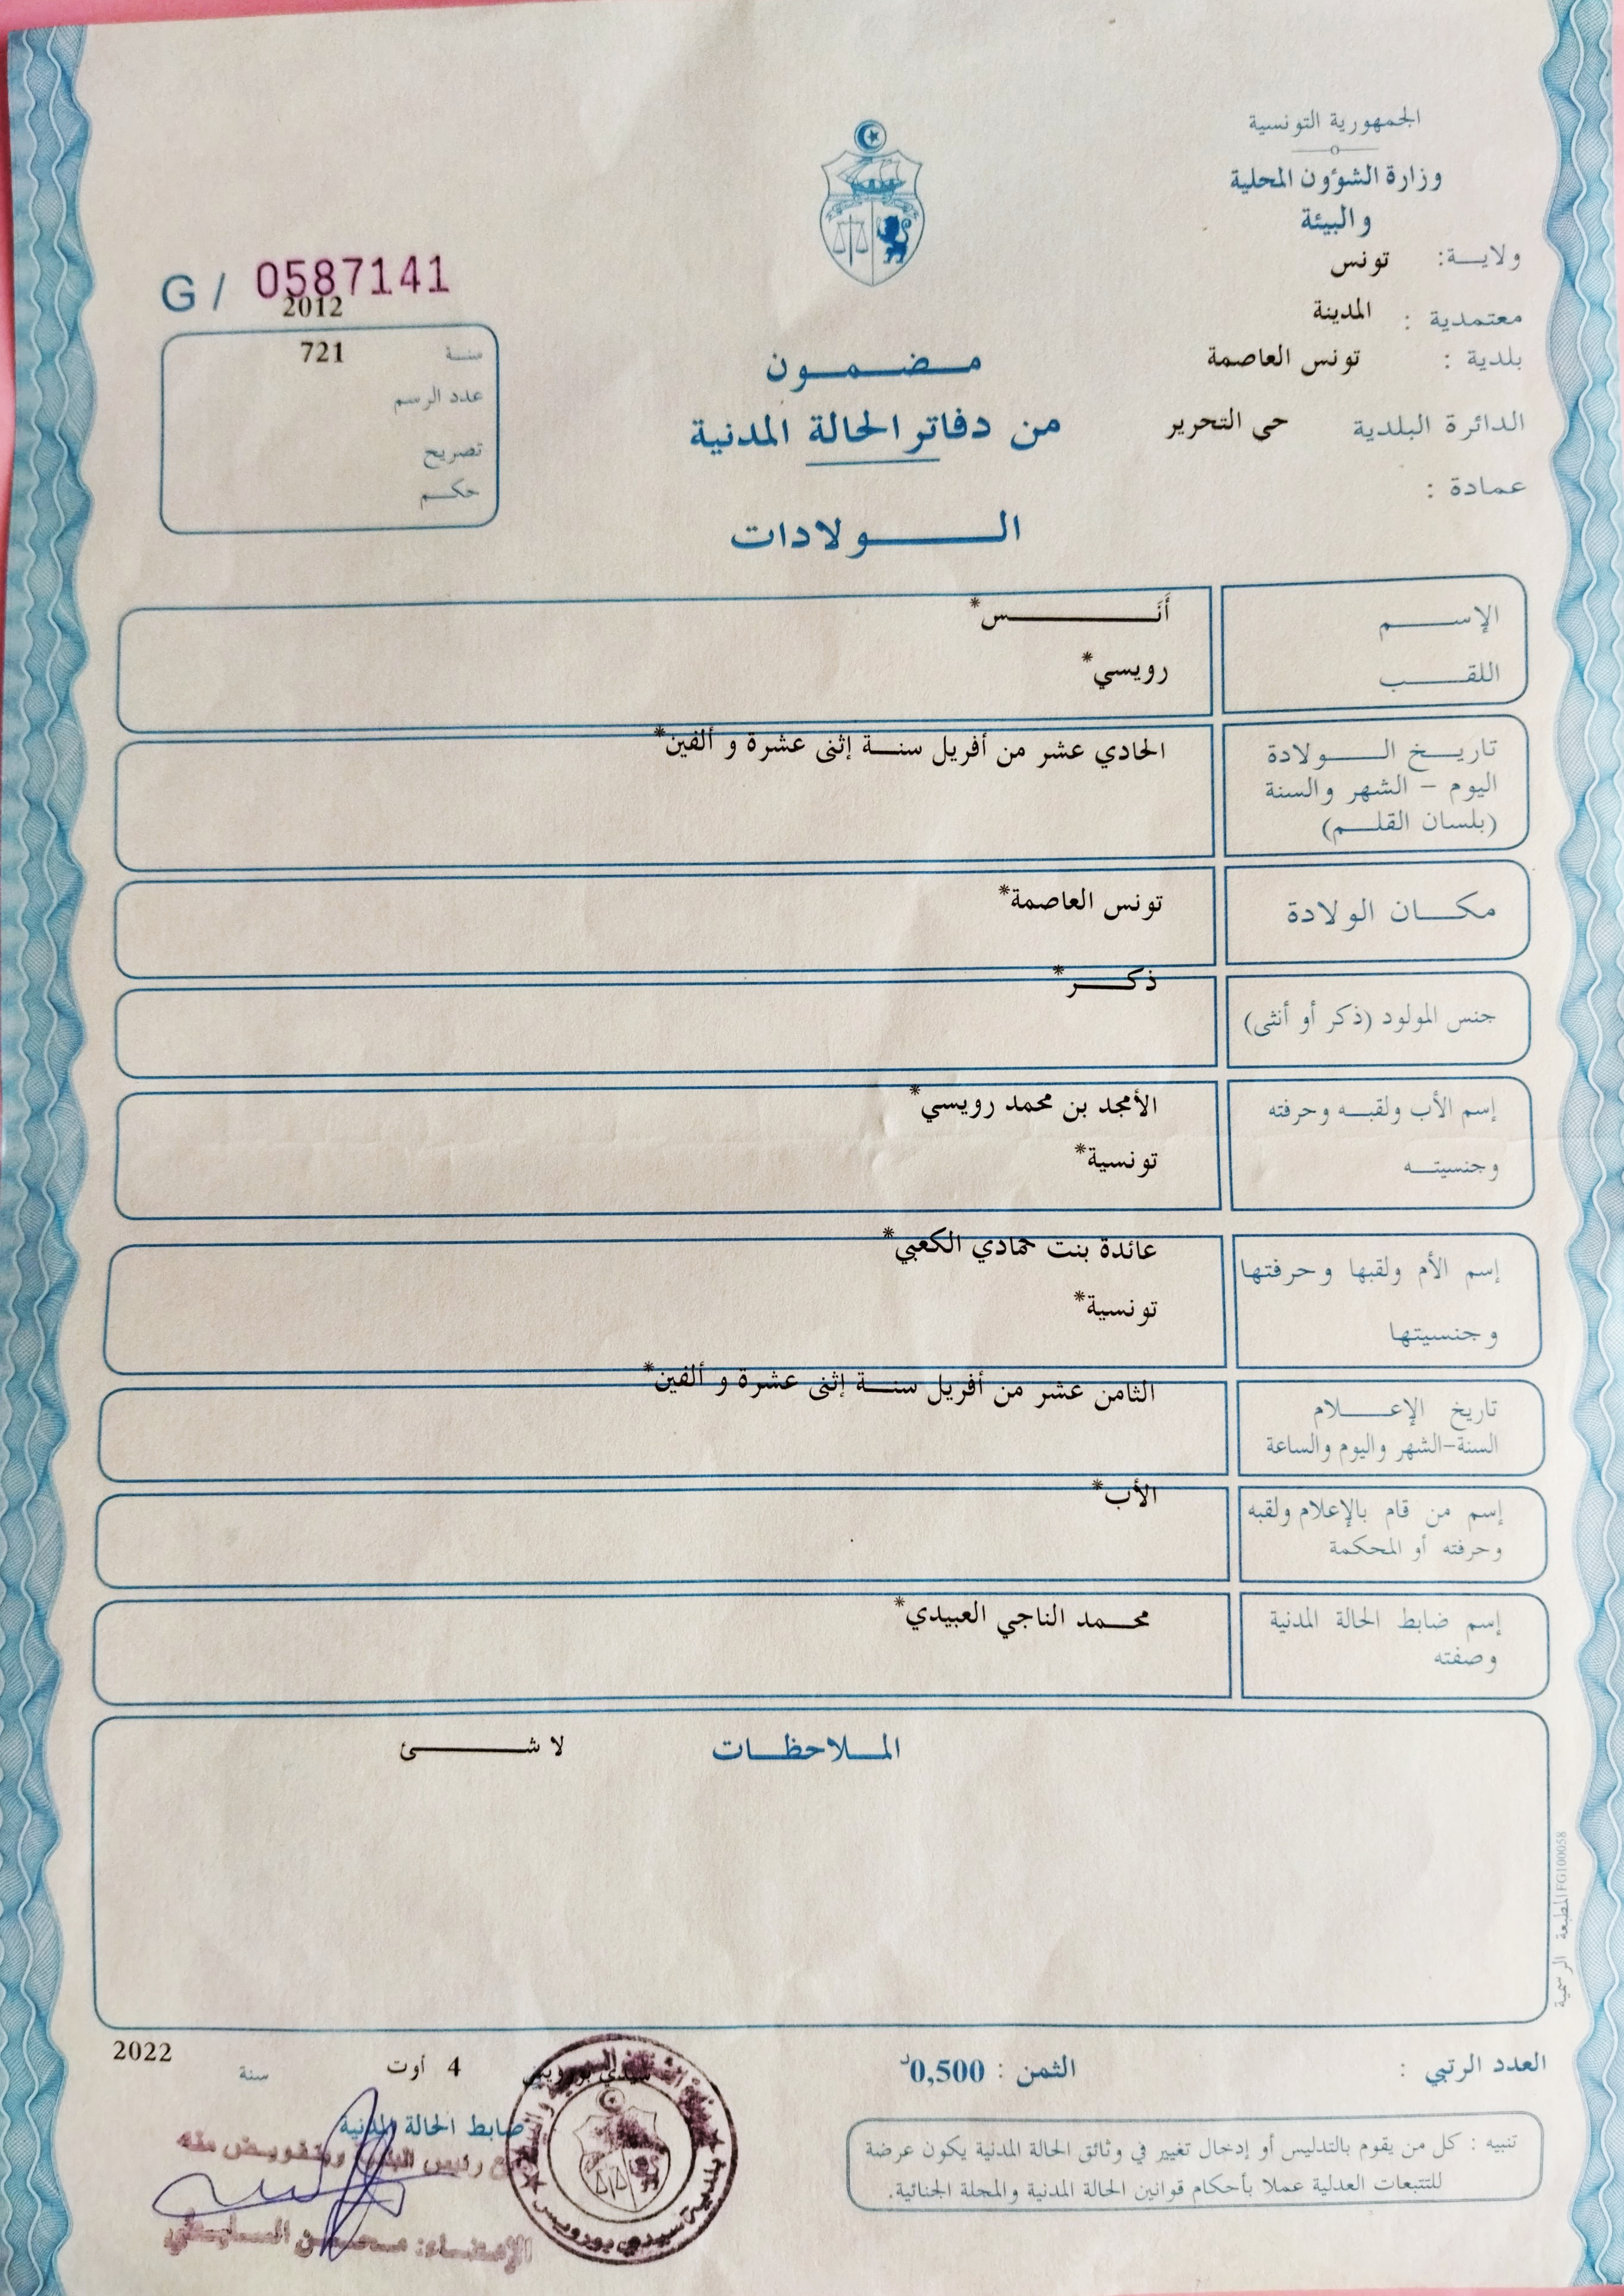 الجمهورية التونسية
وزارة الشؤون المحلية
والبيئة
ولاية: تونس
معتمدية : المدينة
بلدية : تونس العاصمة
الدائرة البلدية حي التحرير
عمادة :
G / 0587141
2012
سنة 721
عدد الرسم
تصريح
حكم
مضمون
من دفاتر الحالة المدنية
الولادات
الإسم أَنَس*
اللقب رويسي*
تاريخ الولادة الحادي عشر من أفريل سنة إثنى عشرة و ألفين*
اليوم - الشهر والسنة
(بلسان القلم)
مكان الولادة تونس العاصمة*
جنس المولود (ذكر أو أنثى) ذكر*
إسم الأب ولقبه وحرفته الأمجد بن محمد رويسي*
وجنسيته تونسية*
إسم الأم ولقبها وحرفتها عائدة بنت حمادي الكعبي*
وجنسيتها تونسية*
تاريخ الإعلام الثامن عشر من أفريل سنة إثنى عشرة و ألفين*
السنة-الشهر واليوم والساعة
إسم من قام بالإعلام ولقبه الأب*
وحرفته أو المحكمة
إسم ضابط الحالة المدنية محمد الناجي العبيدي*
وصفته
الملاحظات لا شئ
المطبعة الرسمية FG100058
العدد الرتبي :
الثمن : 0,500د
سيدي بورويس 4 أوت سنة 2022
ضابط الحالة المدنية
رئيس البلدية وبتفويض منه
الإمضاء: محسن
بلدية سيدي بورويس
تنبيه : كل من يقوم بالتدليس أو إدخال تغيير في وثائق الحالة المدنية يكون عرضة
للتتبعات العدلية عملا بأحكام قوانين الحالة المدنية والمجلة الجنائية.